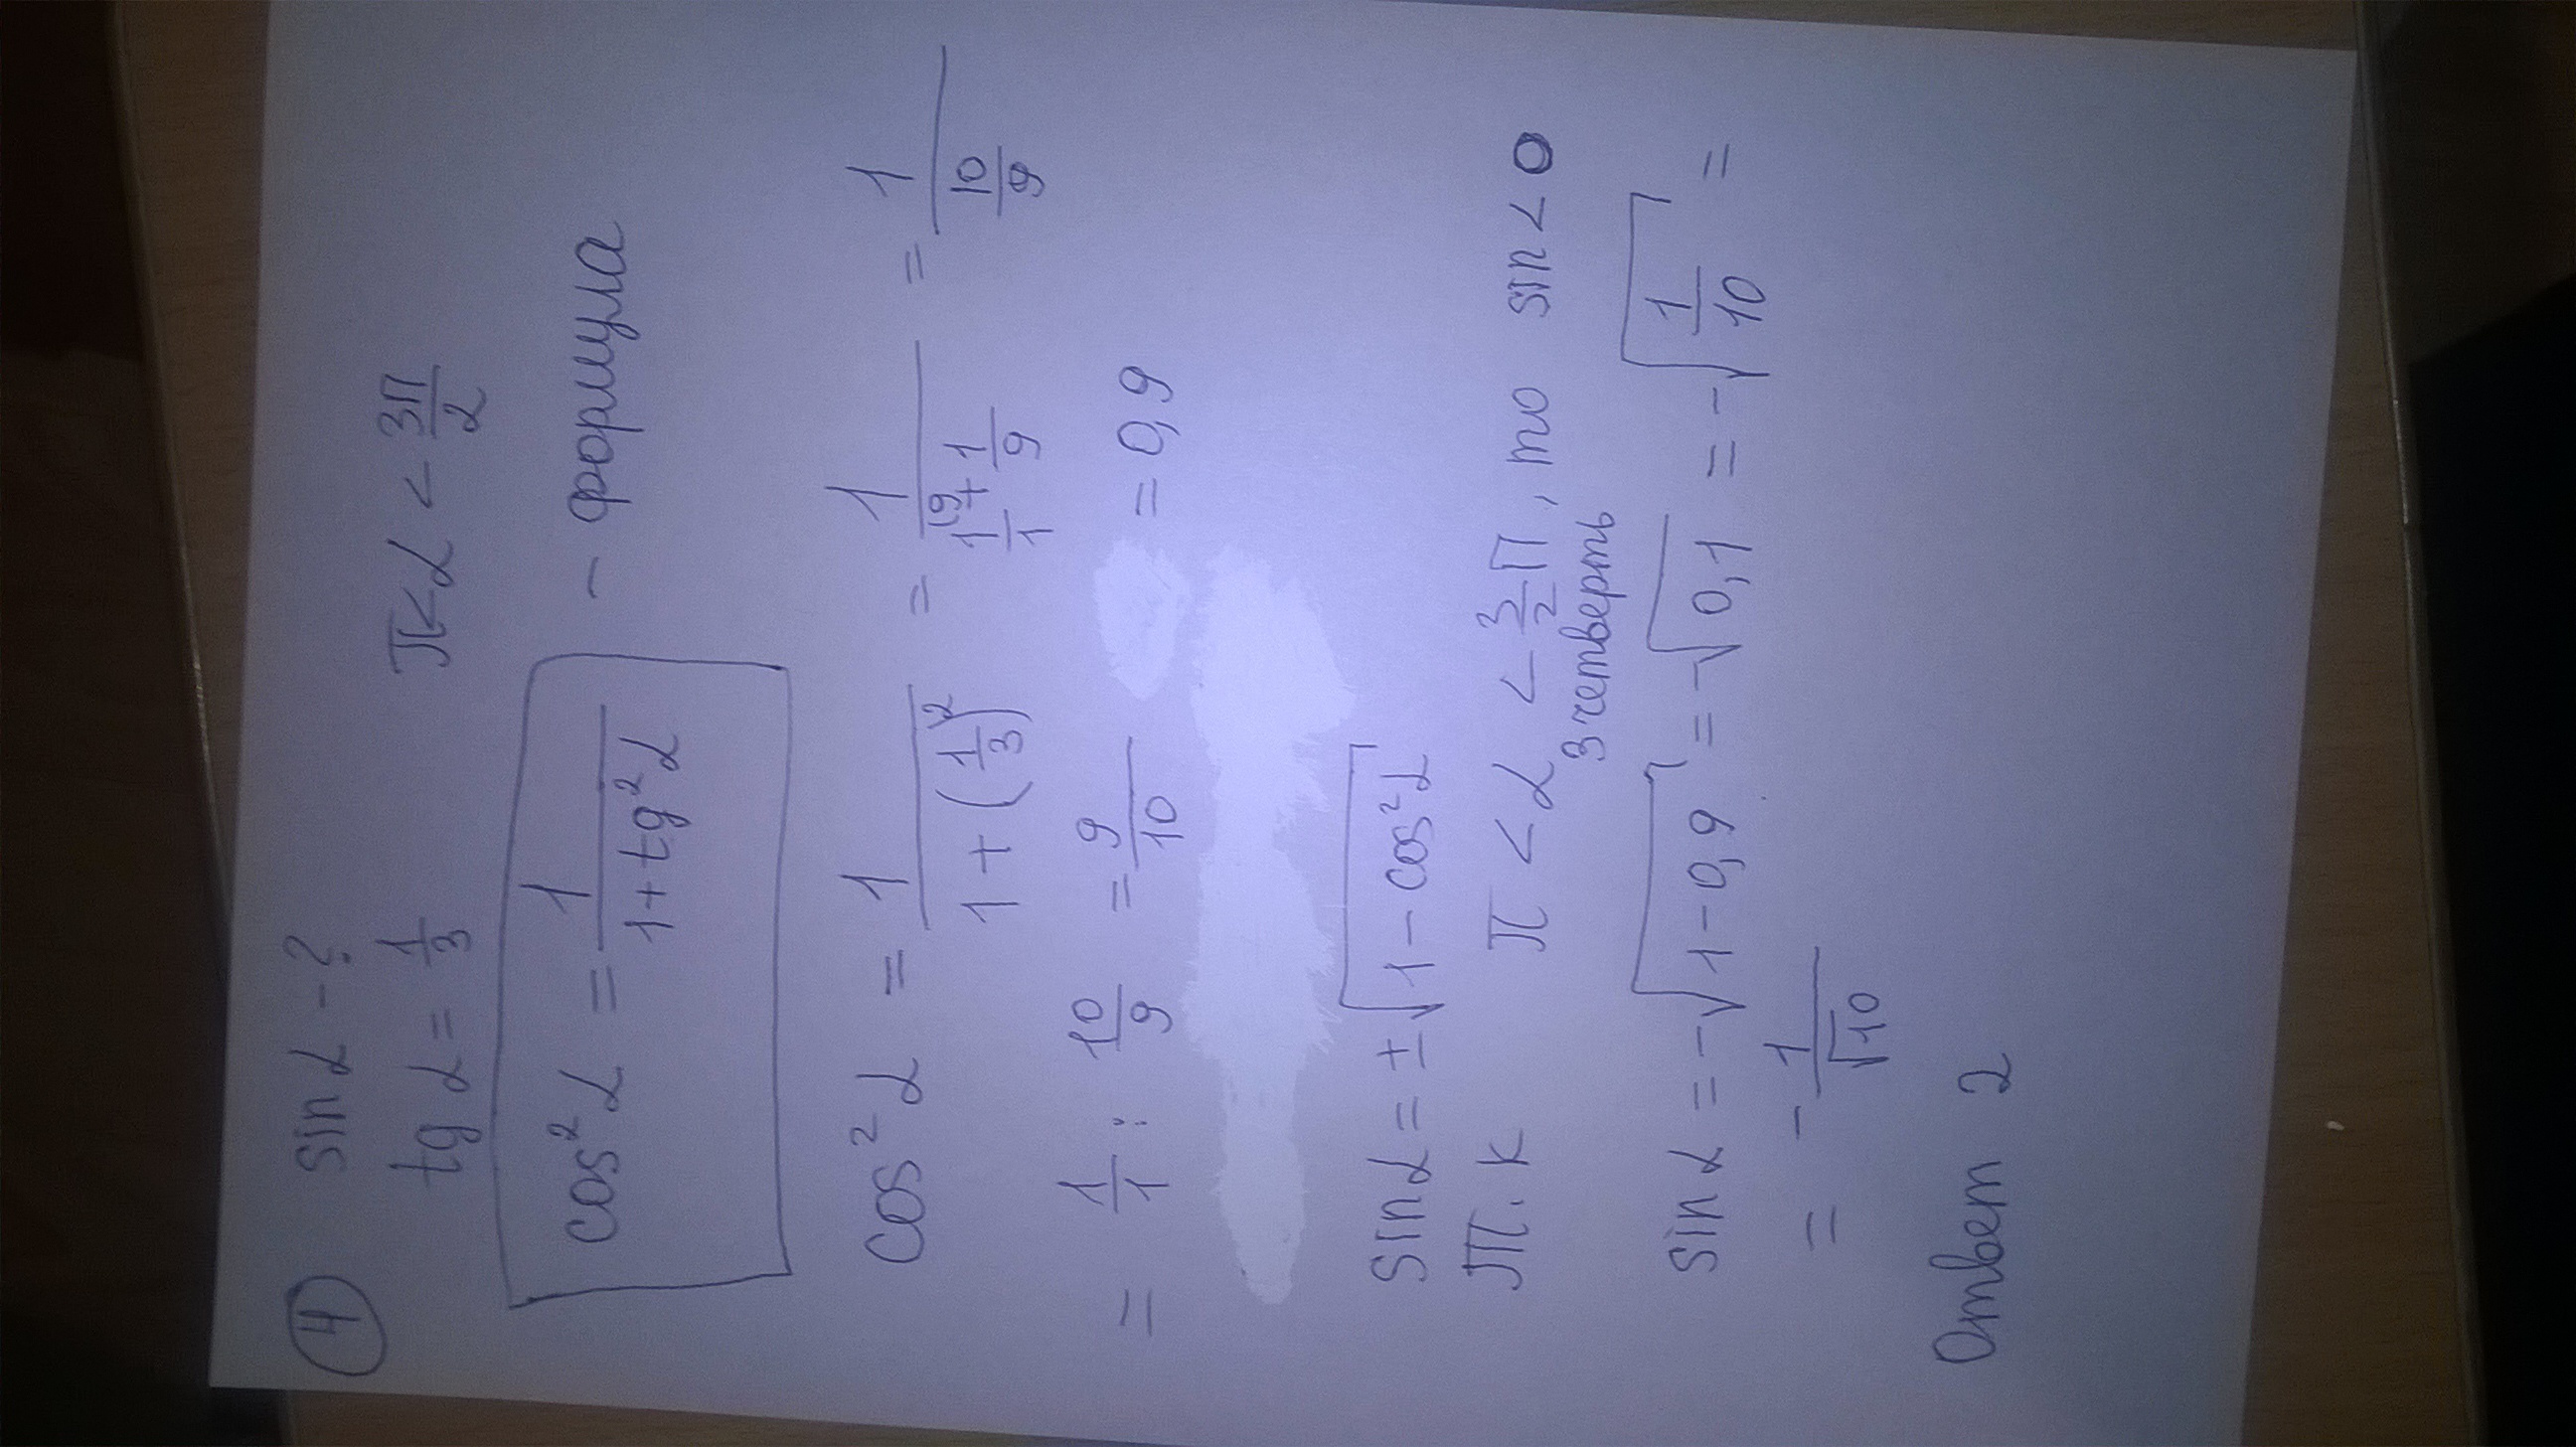 ④ sin α - ?
tg α = 1/3 π < α < 3π/2
cos² α = 1/(1 + tg² α) - формула
cos² α = 1/(1 + (1/3)²) = 1/(1/1⁽⁹ + 1/9) = 1/(10/9)
= 1/1 : 10/9 = 9/10 = 0,9
sin α = ± √(1 - cos² α)
т.к π < α < 3/2 π, то sin < 0
3 четверть
sin α = -√(1 - 0,9) = -√0,1 = -√(1/10) =
= - 1/√10
Ответ 2